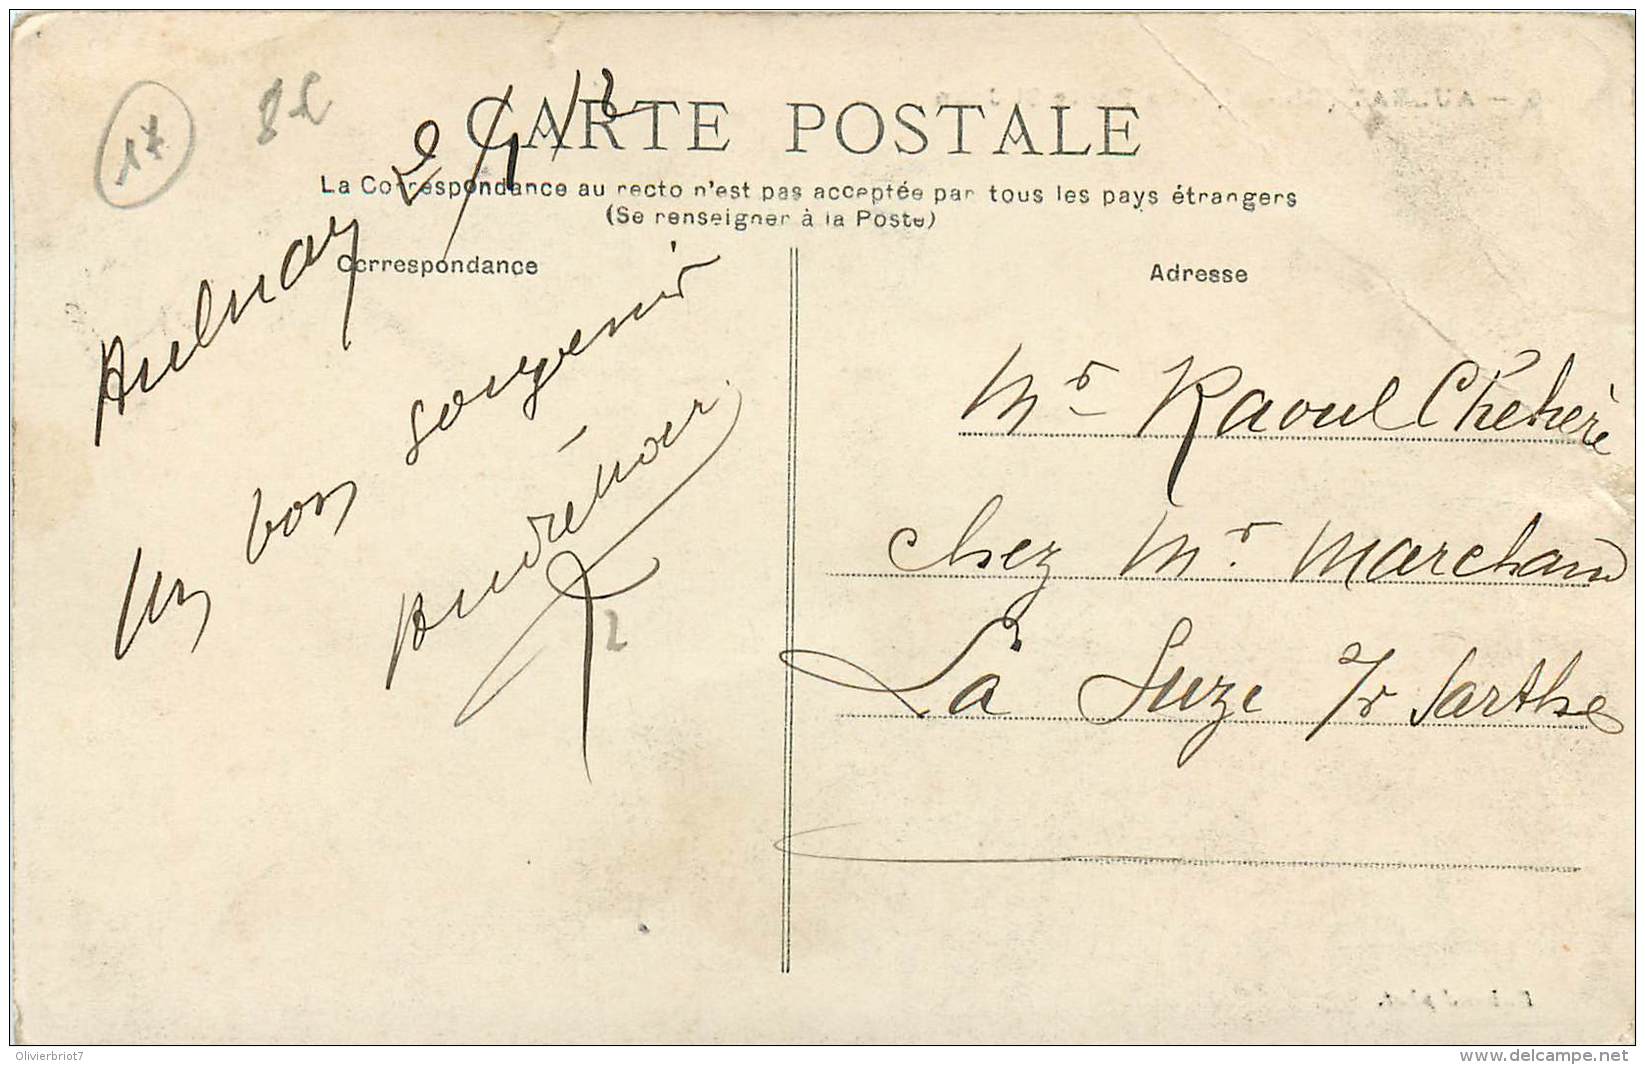 17
CARTE POSTALE
La Correspondance au recto n'est pas acceptée par tous les pays étrangers
(Se renseigner à la Poste)
Correspondance
Adresse
Aulnay 2/1/12
Un bon souvenir
Mr Raoul Chehère
chez Mr. Marchand
La Suze s/r Sarthe
2
Olivierbriot7
www.delcampe.net